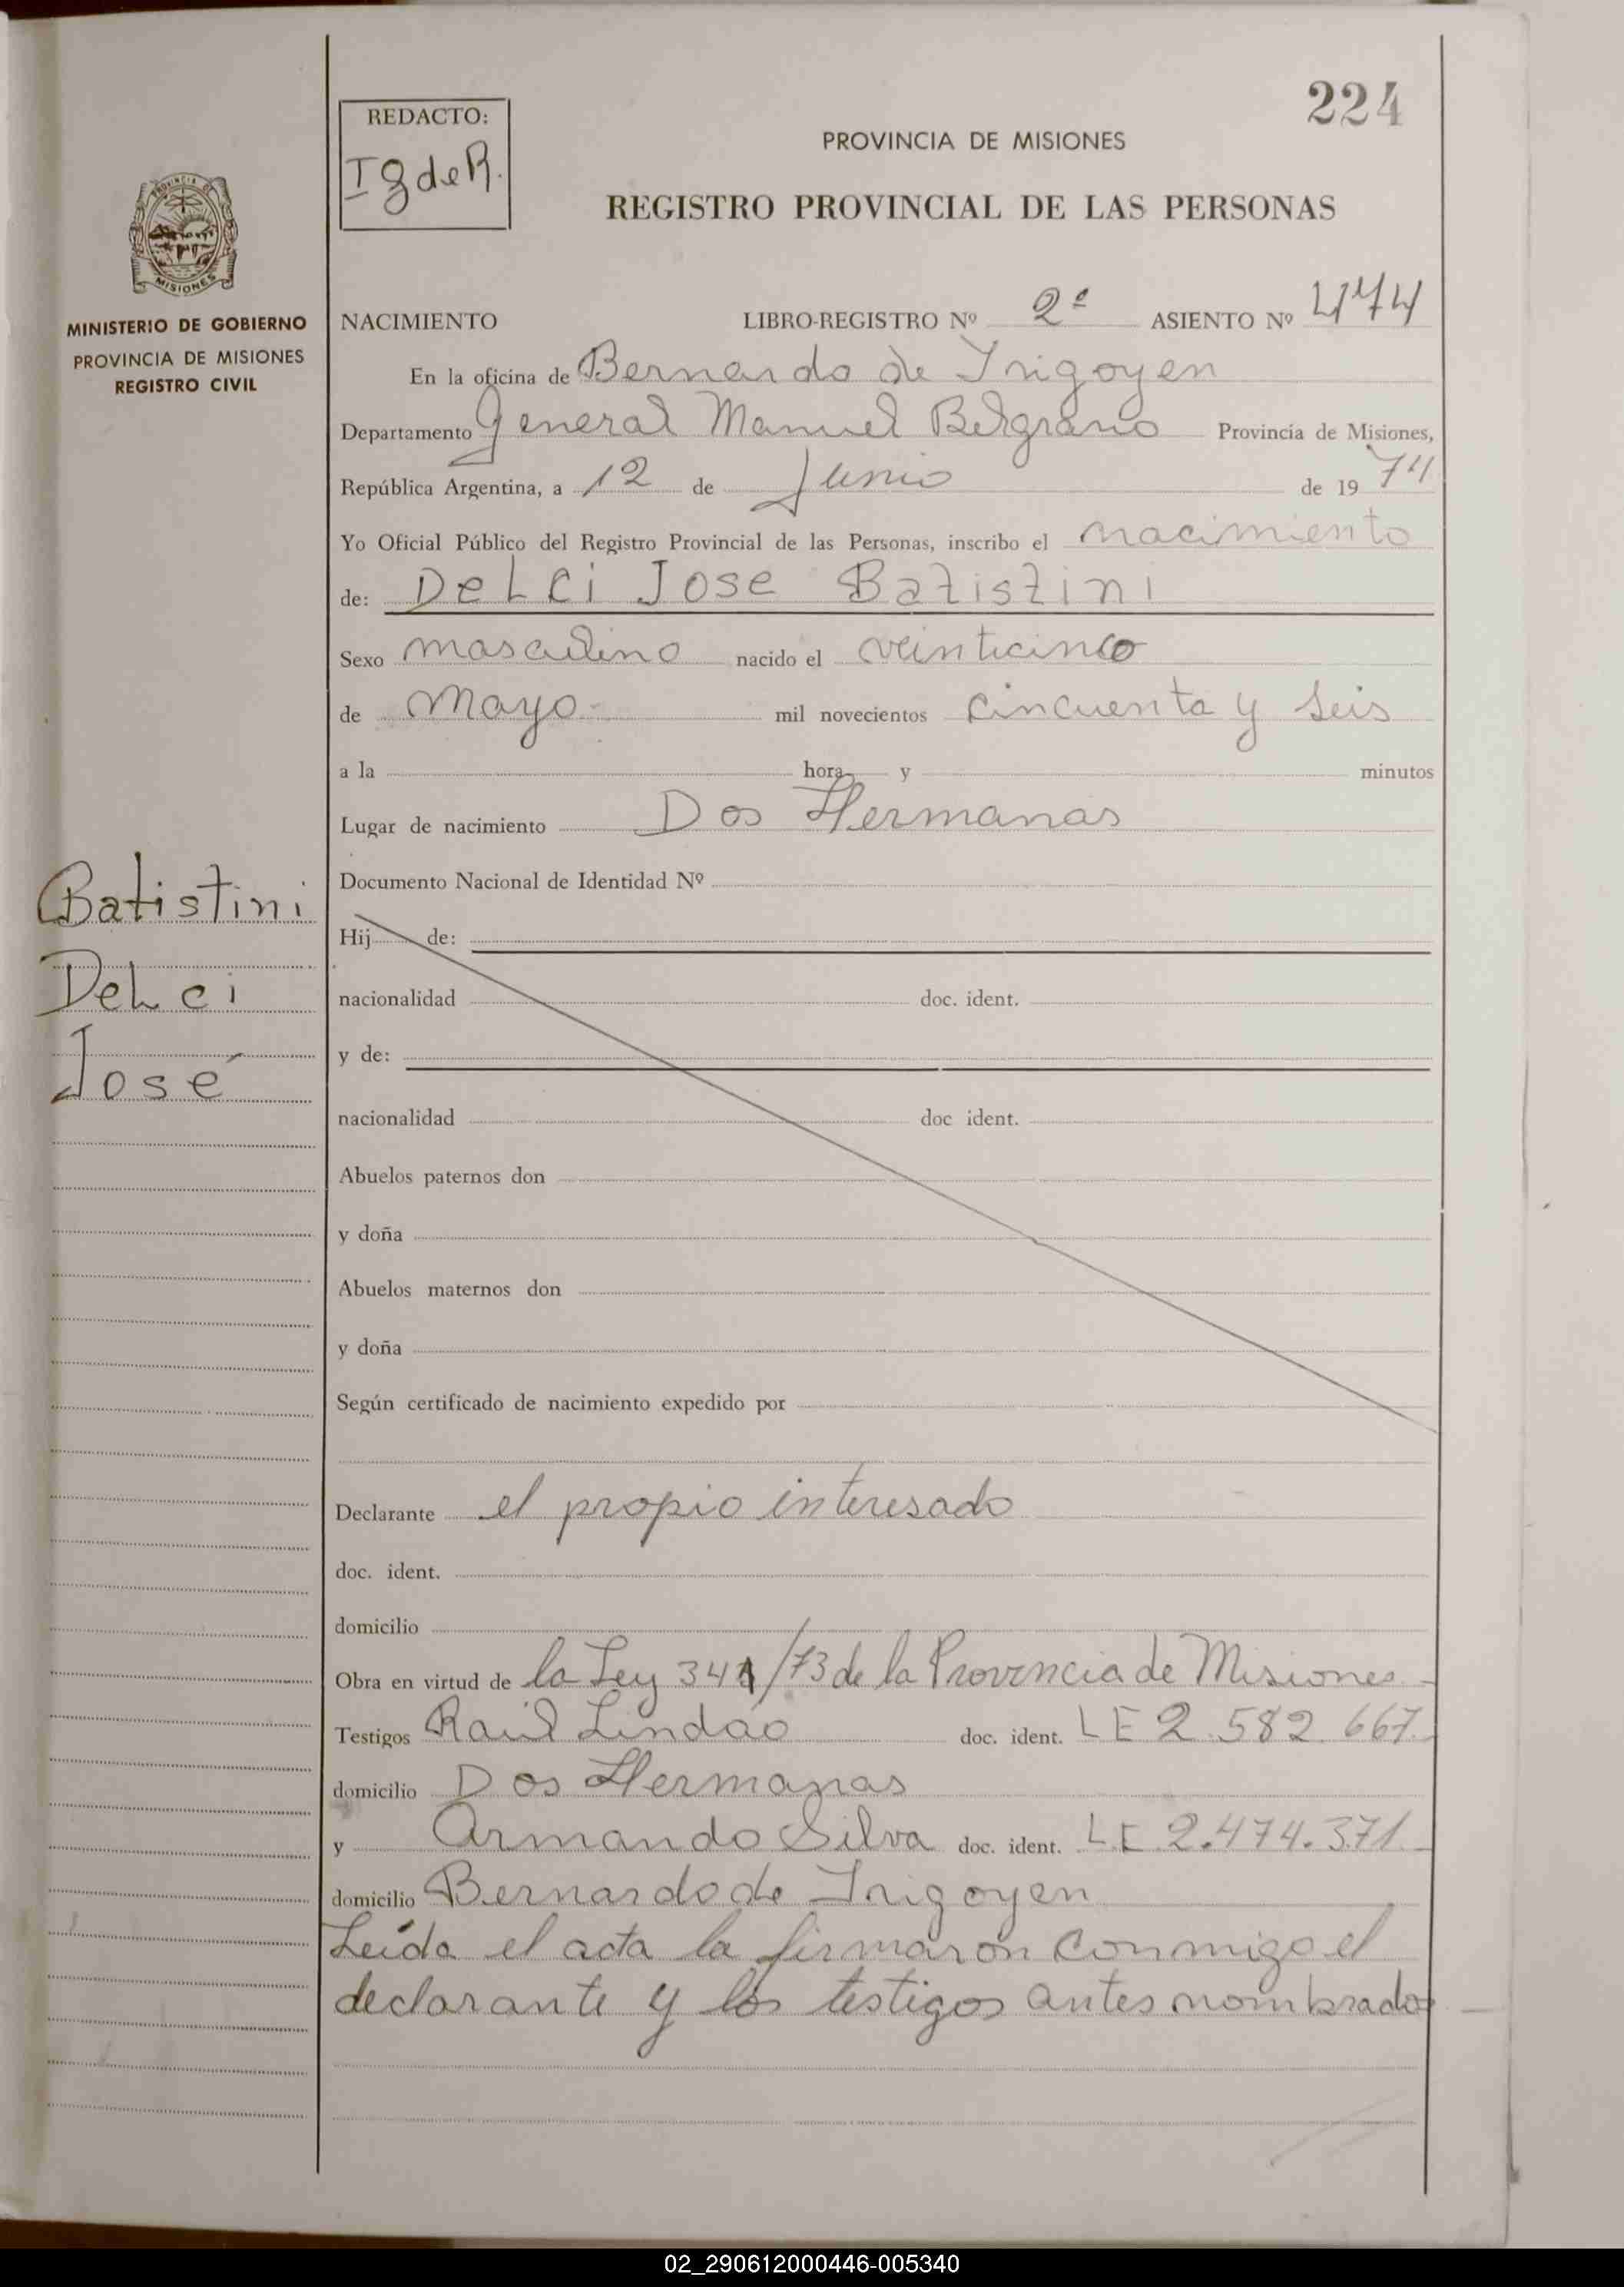 224
REDACTO:
IgdeR.
PROVINCIA DE MISIONES
REGISTRO PROVINCIAL DE LAS PERSONAS
PROVINCIA DE
MISIONES
MINISTERIO DE GOBIERNO
PROVINCIA DE MISIONES
REGISTRO CIVIL
NACIMIENTO LIBRO-REGISTRO Nº 2º ASIENTO Nº 474
En la oficina de Bernardo de Irigoyen
Departamento General Manuel Belgrano Provincia de Misiones,
República Argentina, a 12 de Junio de 19 74
Yo Oficial Público del Registro Provincial de las Personas, inscribo el nacimiento
de: DeLci Jose Batistini
Sexo masculino nacido el veinticinco
de Mayo mil novecientos cincuenta y seis
a la hora y minutos
Lugar de nacimiento Dos Hermanas
Documento Nacional de Identidad Nº
Batistini
DeLci
José
Hij de:
nacionalidad doc. ident.
y de:
nacionalidad doc ident.
Abuelos paternos don
y doña
Abuelos maternos don
y doña
Según certificado de nacimiento expedido por
Declarante el propio interesado
doc. ident.
domicilio
Obra en virtud de la Ley 341/73 de la Provincia de Misiones
Testigos Raúl Lindao doc. ident. LE 2.582.667.
domicilio Dos Hermanas
y Armando Silva doc. ident. LE 2.474.371
domicilio Bernardo de Irigoyen
Leída el acta la firmaron conmigo el
declarante y los testigos antes nombrados
02_290612000446-005340